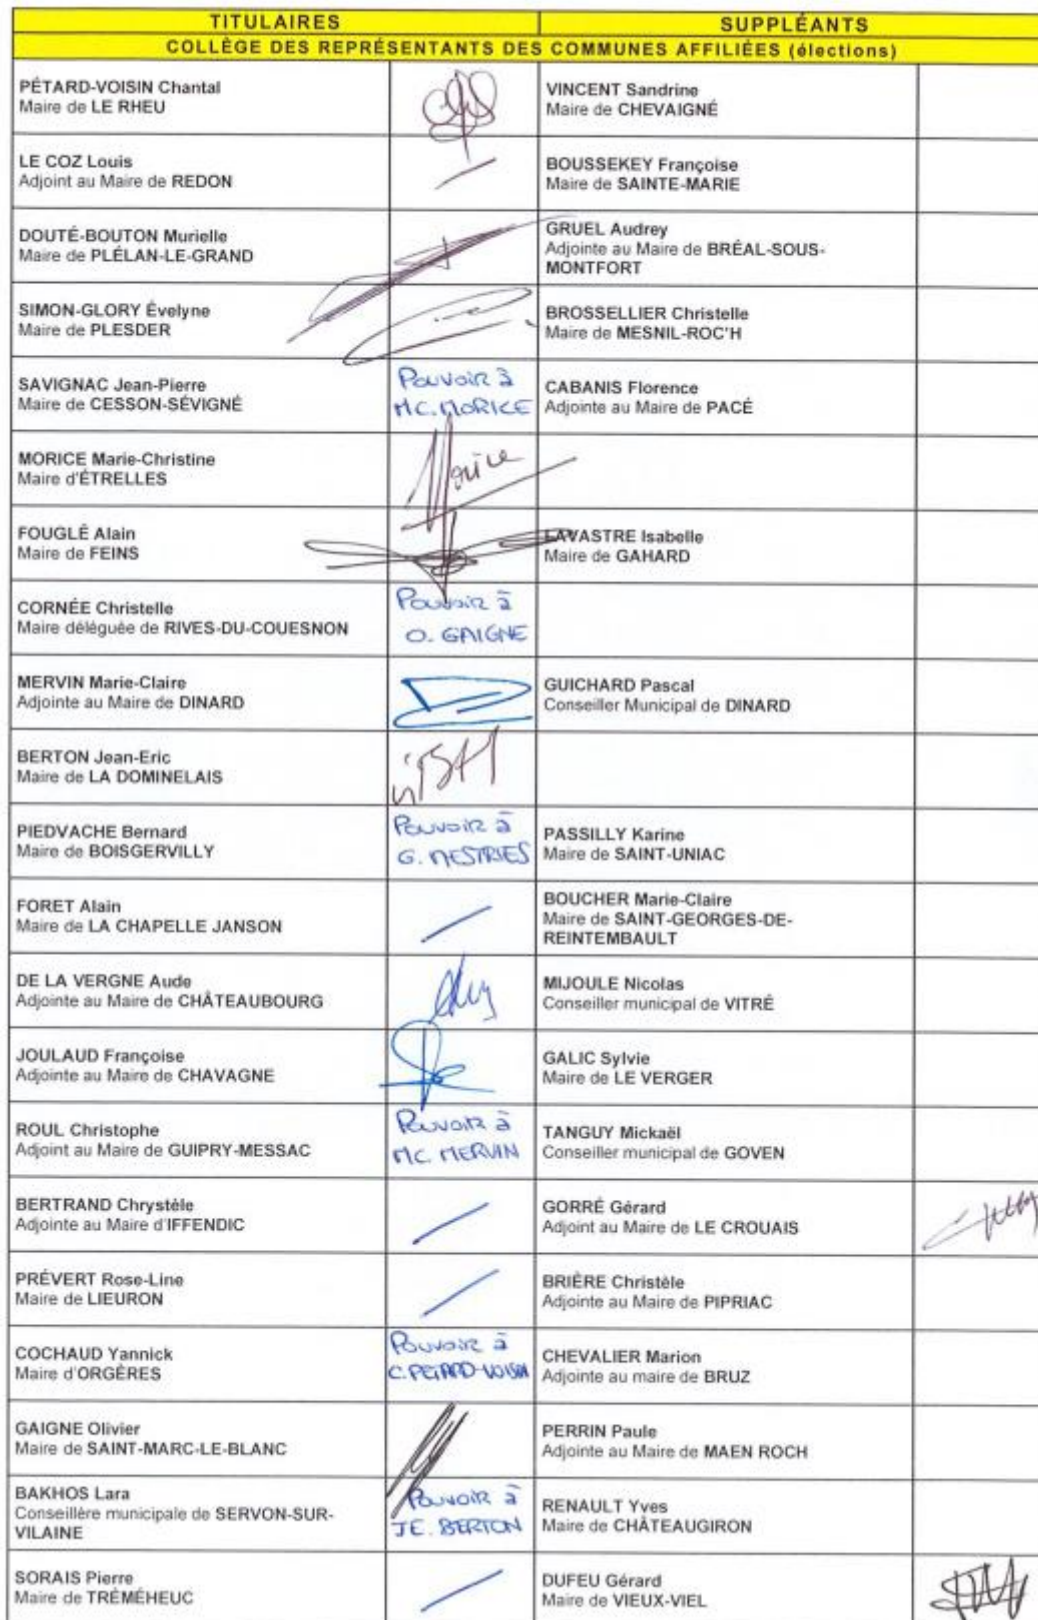 TITULAIRES SUPPLÉANTS
COLLÈGE DES REPRÉSENTANTS DES COMMUNES AFFILIÉES (élections)
PÉTARD-VOISIN Chantal
Maire de LE RHEU
VINCENT Sandrine
Maire de CHEVAIGNÉ
LE COZ Louis
Adjoint au Maire de REDON
BOUSSEKEY Françoise
Maire de SAINTE-MARIE
DOUTÉ-BOUTON Murielle
Maire de PLÉLAN-LE-GRAND
GRUEL Audrey
Adjointe au Maire de BRÉAL-SOUS-
MONTFORT
SIMON-GLORY Évelyne
Maire de PLESDER
BROSSELLIER Christelle
Maire de MESNIL-ROC'H
SAVIGNAC Jean-Pierre
Maire de CESSON-SÉVIGNÉ
Pouvoir à
MC. MORICE
CABANIS Florence
Adjointe au Maire de PACÉ
MORICE Marie-Christine
Maire d'ÉTRELLES
Morice
FOUGLÉ Alain
Maire de FEINS
LAVASTRE Isabelle
Maire de GAHARD
CORNÉE Christelle
Maire déléguée de RIVES-DU-COUESNON
Pouvoir à
O. GAIGNE
MERVIN Marie-Claire
Adjointe au Maire de DINARD
GUICHARD Pascal
Conseiller Municipal de DINARD
BERTON Jean-Eric
Maire de LA DOMINELAIS
PIEDVACHE Bernard
Maire de BOISGERVILLY
Pouvoir à
G. MESTRIES
PASSILLY Karine
Maire de SAINT-UNIAC
FORET Alain
Maire de LA CHAPELLE JANSON
BOUCHER Marie-Claire
Maire de SAINT-GEORGES-DE-
REINTEMBAULT
DE LA VERGNE Aude
Adjointe au Maire de CHÂTEAUBOURG
MIJOULE Nicolas
Conseiller municipal de VITRÉ
JOULAUD Françoise
Adjointe au Maire de CHAVAGNE
GALIC Sylvie
Maire de LE VERGER
ROUL Christophe
Adjoint au Maire de GUIPRY-MESSAC
Pouvoir à
MC. MERVIN
TANGUY Mickaël
Conseiller municipal de GOVEN
BERTRAND Chrystèle
Adjointe au Maire d'IFFENDIC
GORRÉ Gérard
Adjoint au Maire de LE CROUAIS
PRÉVERT Rose-Line
Maire de LIEURON
BRIÈRE Christèle
Adjointe au Maire de PIPRIAC
COCHAUD Yannick
Maire d'ORGÈRES
Pouvoir à
C. PETARD-VOISIN
CHEVALIER Marion
Adjointe au maire de BRUZ
GAIGNE Olivier
Maire de SAINT-MARC-LE-BLANC
PERRIN Paule
Adjointe au Maire de MAEN ROCH
BAKHOS Lara
Conseillère municipale de SERVON-SUR-
VILAINE
Pouvoir à
JE. BERTON
RENAULT Yves
Maire de CHÂTEAUGIRON
SORAIS Pierre
Maire de TRÉMÉHEUC
DUFEU Gérard
Maire de VIEUX-VIEL